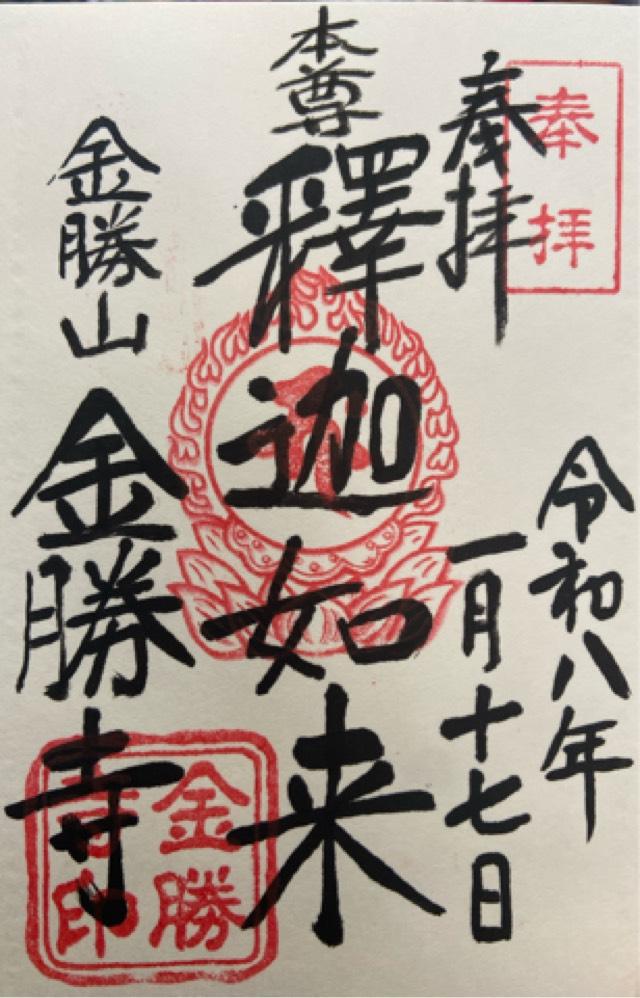 奉拝
奉拝
令和八年
一月十七日
本尊
釋迦如来
金勝山
金勝寺
金勝
寺印